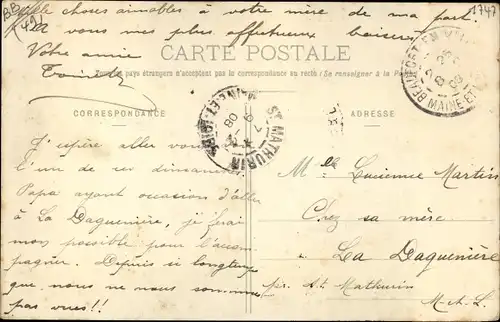 choses aimables à votre mère de ma part.
vous mes plus affectueux baisers
Votre amie
CARTE POSTALE
pays étrangers n'acceptent pas la correspondance au recto (Se renseigner à la
CORRESPONDANCE
ADRESSE
J'espère aller vous
l'un de ces dimanches
Papa ayant occasion d'aller
à La Daguenière, je ferai
mon possible pour l'accom
pagner. Depuis si longtemps
que nous ne nous sommes
pas vues!!
Melle Lucienne Martin
Chez sa mère
La Daguenière
par St. Mathurin
M-&-L.
ST MATHURIN
MAINE-ET-LOIRE
BEAUFORT EN
MAINE-ET-
1747